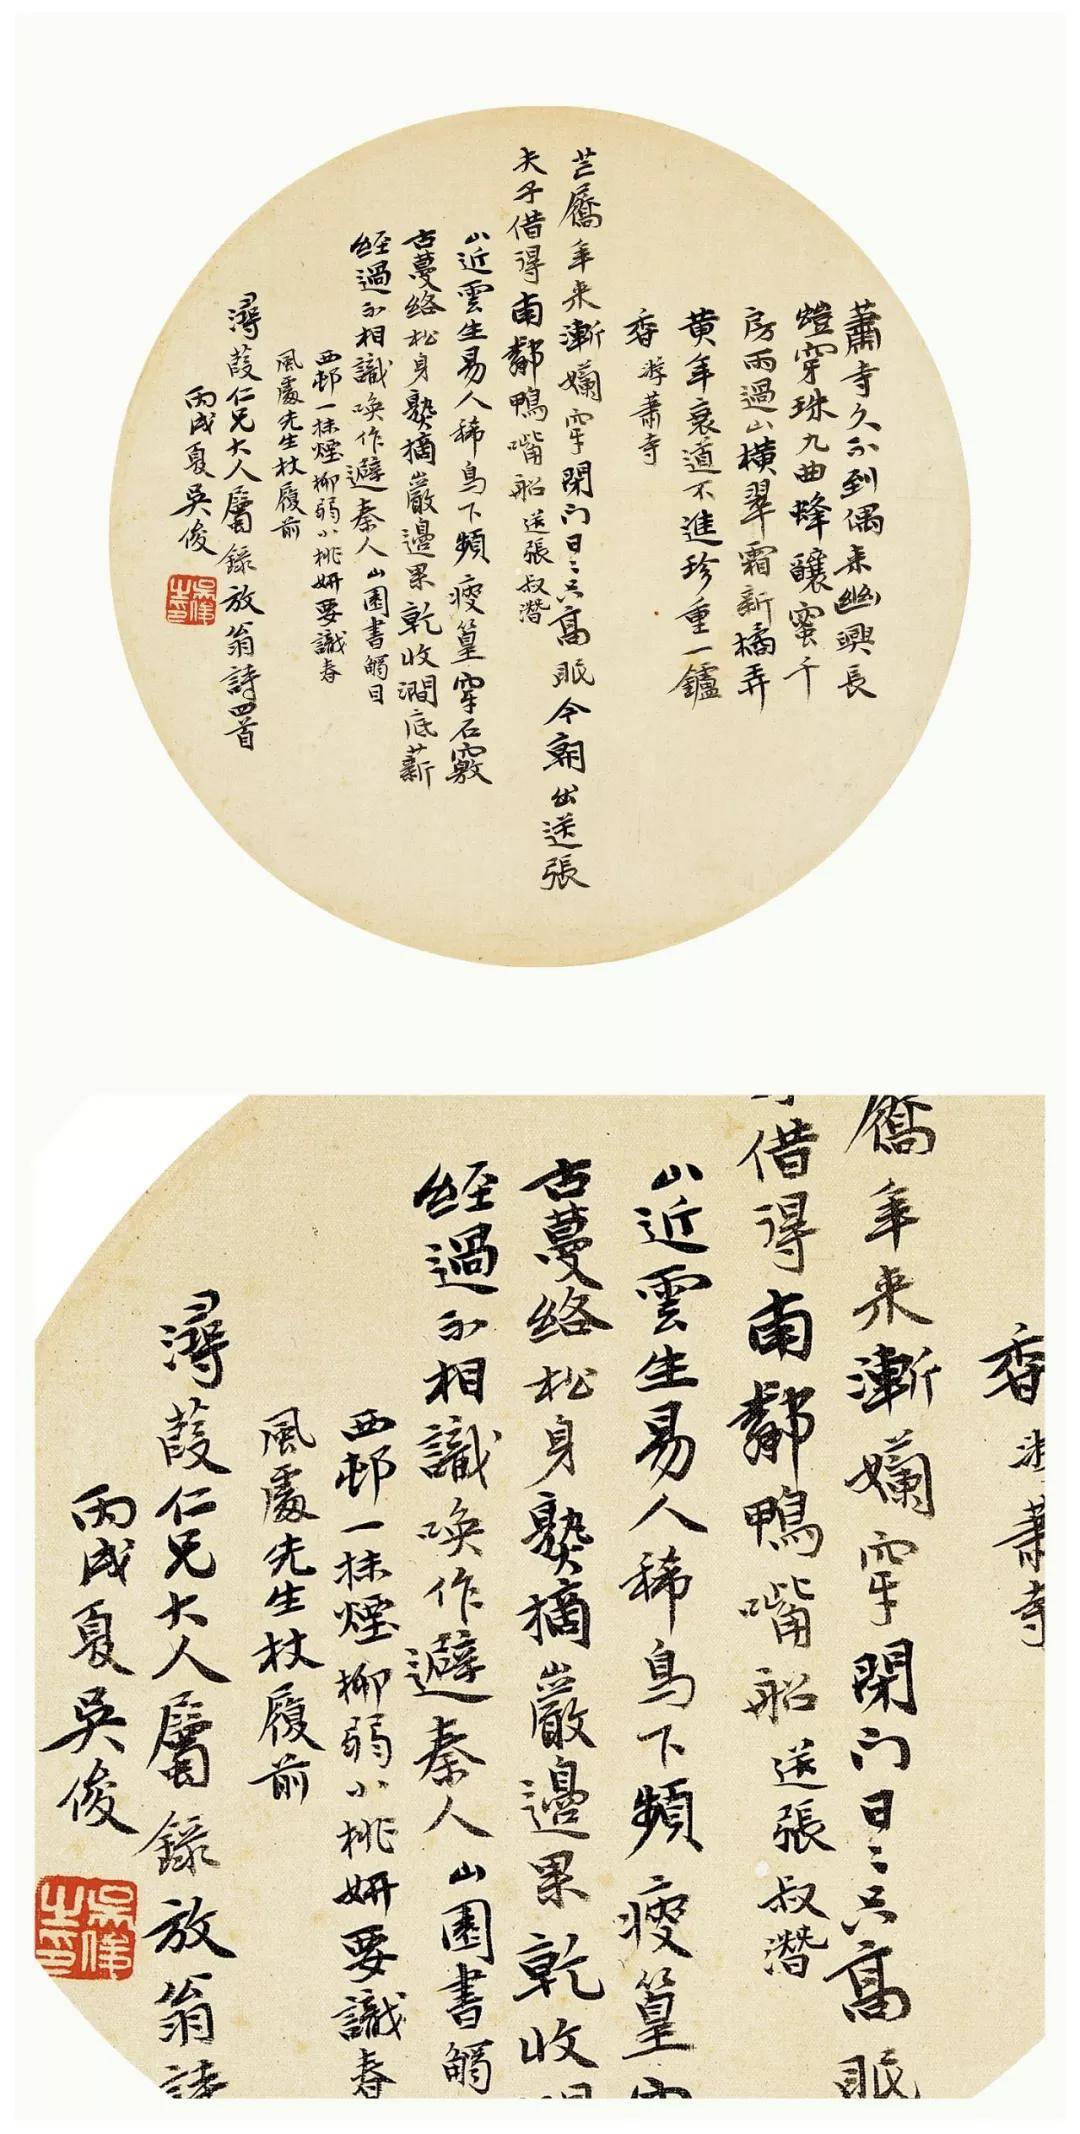 蕭寺久不到偶来幽興長
燈穿珠九曲蜂釀蜜千
房雨過山橫翠霜新橘弄
黄年衰道不進珍重一鑪
香 游蕭寺
芒屩年来漸嬾穿閉门日〻只高眠今朝出送張
夫子借得南鄰鴨嘴船 送張叔潛
山近雲生易人稀鳥下頻瘦篁穿石竅
古蔓絡松身熟摘巖邊果乾收澗底薪
經過不相識喚作避秦人 山園書觸目
西邨一抹煙柳弱小桃妍要識春
風處先生杖履前
潯葭仁兄大人屬錄放翁詩四首
丙戌夏吳俊
吳俊之印
香 游蕭寺
屩年来漸嬾穿閉门日〻只高眠
借得南鄰鴨嘴船 送張叔潛
山近雲生易人稀鳥下頻瘦篁穿
古蔓絡松身熟摘巖邊果乾收澗
經過不相識喚作避秦人 山園書觸
西邨一抹煙柳弱小桃妍要識春
風處先生杖履前
潯葭仁兄大人屬錄放翁詩
丙戌夏吳俊
吳俊之印